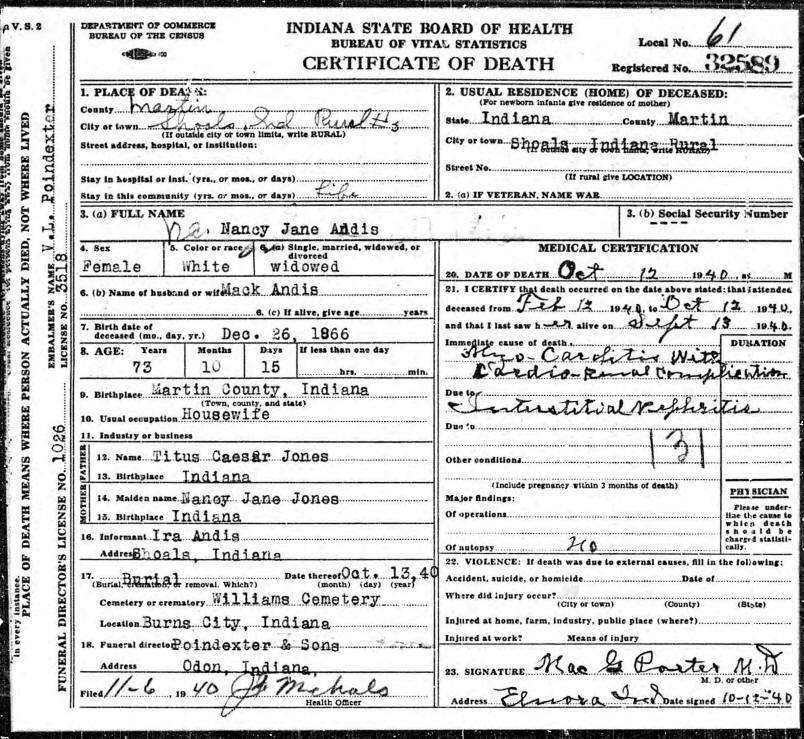 V. S. 2
DEPARTMENT OF COMMERCE
BUREAU OF THE CENSUS
INDIANA STATE BOARD OF HEALTH
BUREAU OF VITAL STATISTICS
CERTIFICATE OF DEATH
Local No. 61
Registered No. 32589
1. PLACE OF DEATH:
County Martin
City or town Shoals, Ind Rural #3
(If outside city or town limits, write RURAL)
Street address, hospital, or institution:
Stay in hospital or inst. (yrs., or mos., or days)
Stay in this community (yrs., or mos., or days) Life
2. USUAL RESIDENCE (HOME) OF DECEASED:
(For newborn infants give residence of mother)
State Indiana County Martin
City or town Shoals Indiana Rural
(If outside city or town limits, write RURAL)
Street No.
(If rural give LOCATION)
2. (a) IF VETERAN, NAME WAR
3. (a) FULL NAME
Nancy Jane Andis
3. (b) Social Security Number
4. Sex
Female
5. Color or race
White
6. (a) Single, married, widowed, or divorced
widowed
6. (b) Name of husband or wife Mack Andis
6. (c) If alive, give age years
7. Birth date of
deceased (mo., day, yr.) Dec. 26, 1866
8. AGE: Years Months Days If less than one day
73 10 15 hrs. min.
9. Birthplace Martin County, Indiana
(Town, county, and state)
10. Usual occupation Housewife
11. Industry or business
FATHER
12. Name Titus Caesar Jones
13. Birthplace Indiana
MOTHER
14. Maiden name Nancy Jane Jones
15. Birthplace Indiana
16. Informant Ira Andis
Address Shoals, Indiana
17. Burial Date thereof Oct. 13, 40
(Burial, cremation, or removal. Which?) (month) (day) (year)
Cemetery or crematory Williams Cemetery
Location Burns City, Indiana
18. Funeral director Poindexter & Sons
Address Odon, Indiana,
Filed 11-6, 1940 Michals
Health Officer
MEDICAL CERTIFICATION
20. DATE OF DEATH Oct 12 1940, at M
21. I CERTIFY that death occurred on the date above stated: that I attended
deceased from Feb 12 1940, to Oct 12 1940,
and that I last saw her alive on Sept 13 1940.
Immediate cause of death
DURATION
Myo-Carditis With
Cardio-Renal Complication
Due to
Interstitial Nephritis
Due to
131
Other conditions
(Include pregnancy within 3 months of death)
Major findings:
Of operations
Of autopsy no
PHYSICIAN
Please underline the cause to
which death
should be
charged statistically.
22. VIOLENCE: If death was due to external causes, fill in the following:
Accident, suicide, or homicide Date of
Where did injury occur?
(City or town) (County) (State)
Injured at home, farm, industry, public place (where?)
Injured at work? Means of injury
23. SIGNATURE Mac G Porter M.D
M. D. or other
Address Elnora Ind Date signed 10-12-40
in every instance.
PLACE OF DEATH MEANS WHERE PERSON ACTUALLY DIED, NOT WHERE LIVED
EMBALMER'S NAME V.L. Poindexter
LICENSE NO. 3518
FUNERAL DIRECTOR'S LICENSE NO. 1026